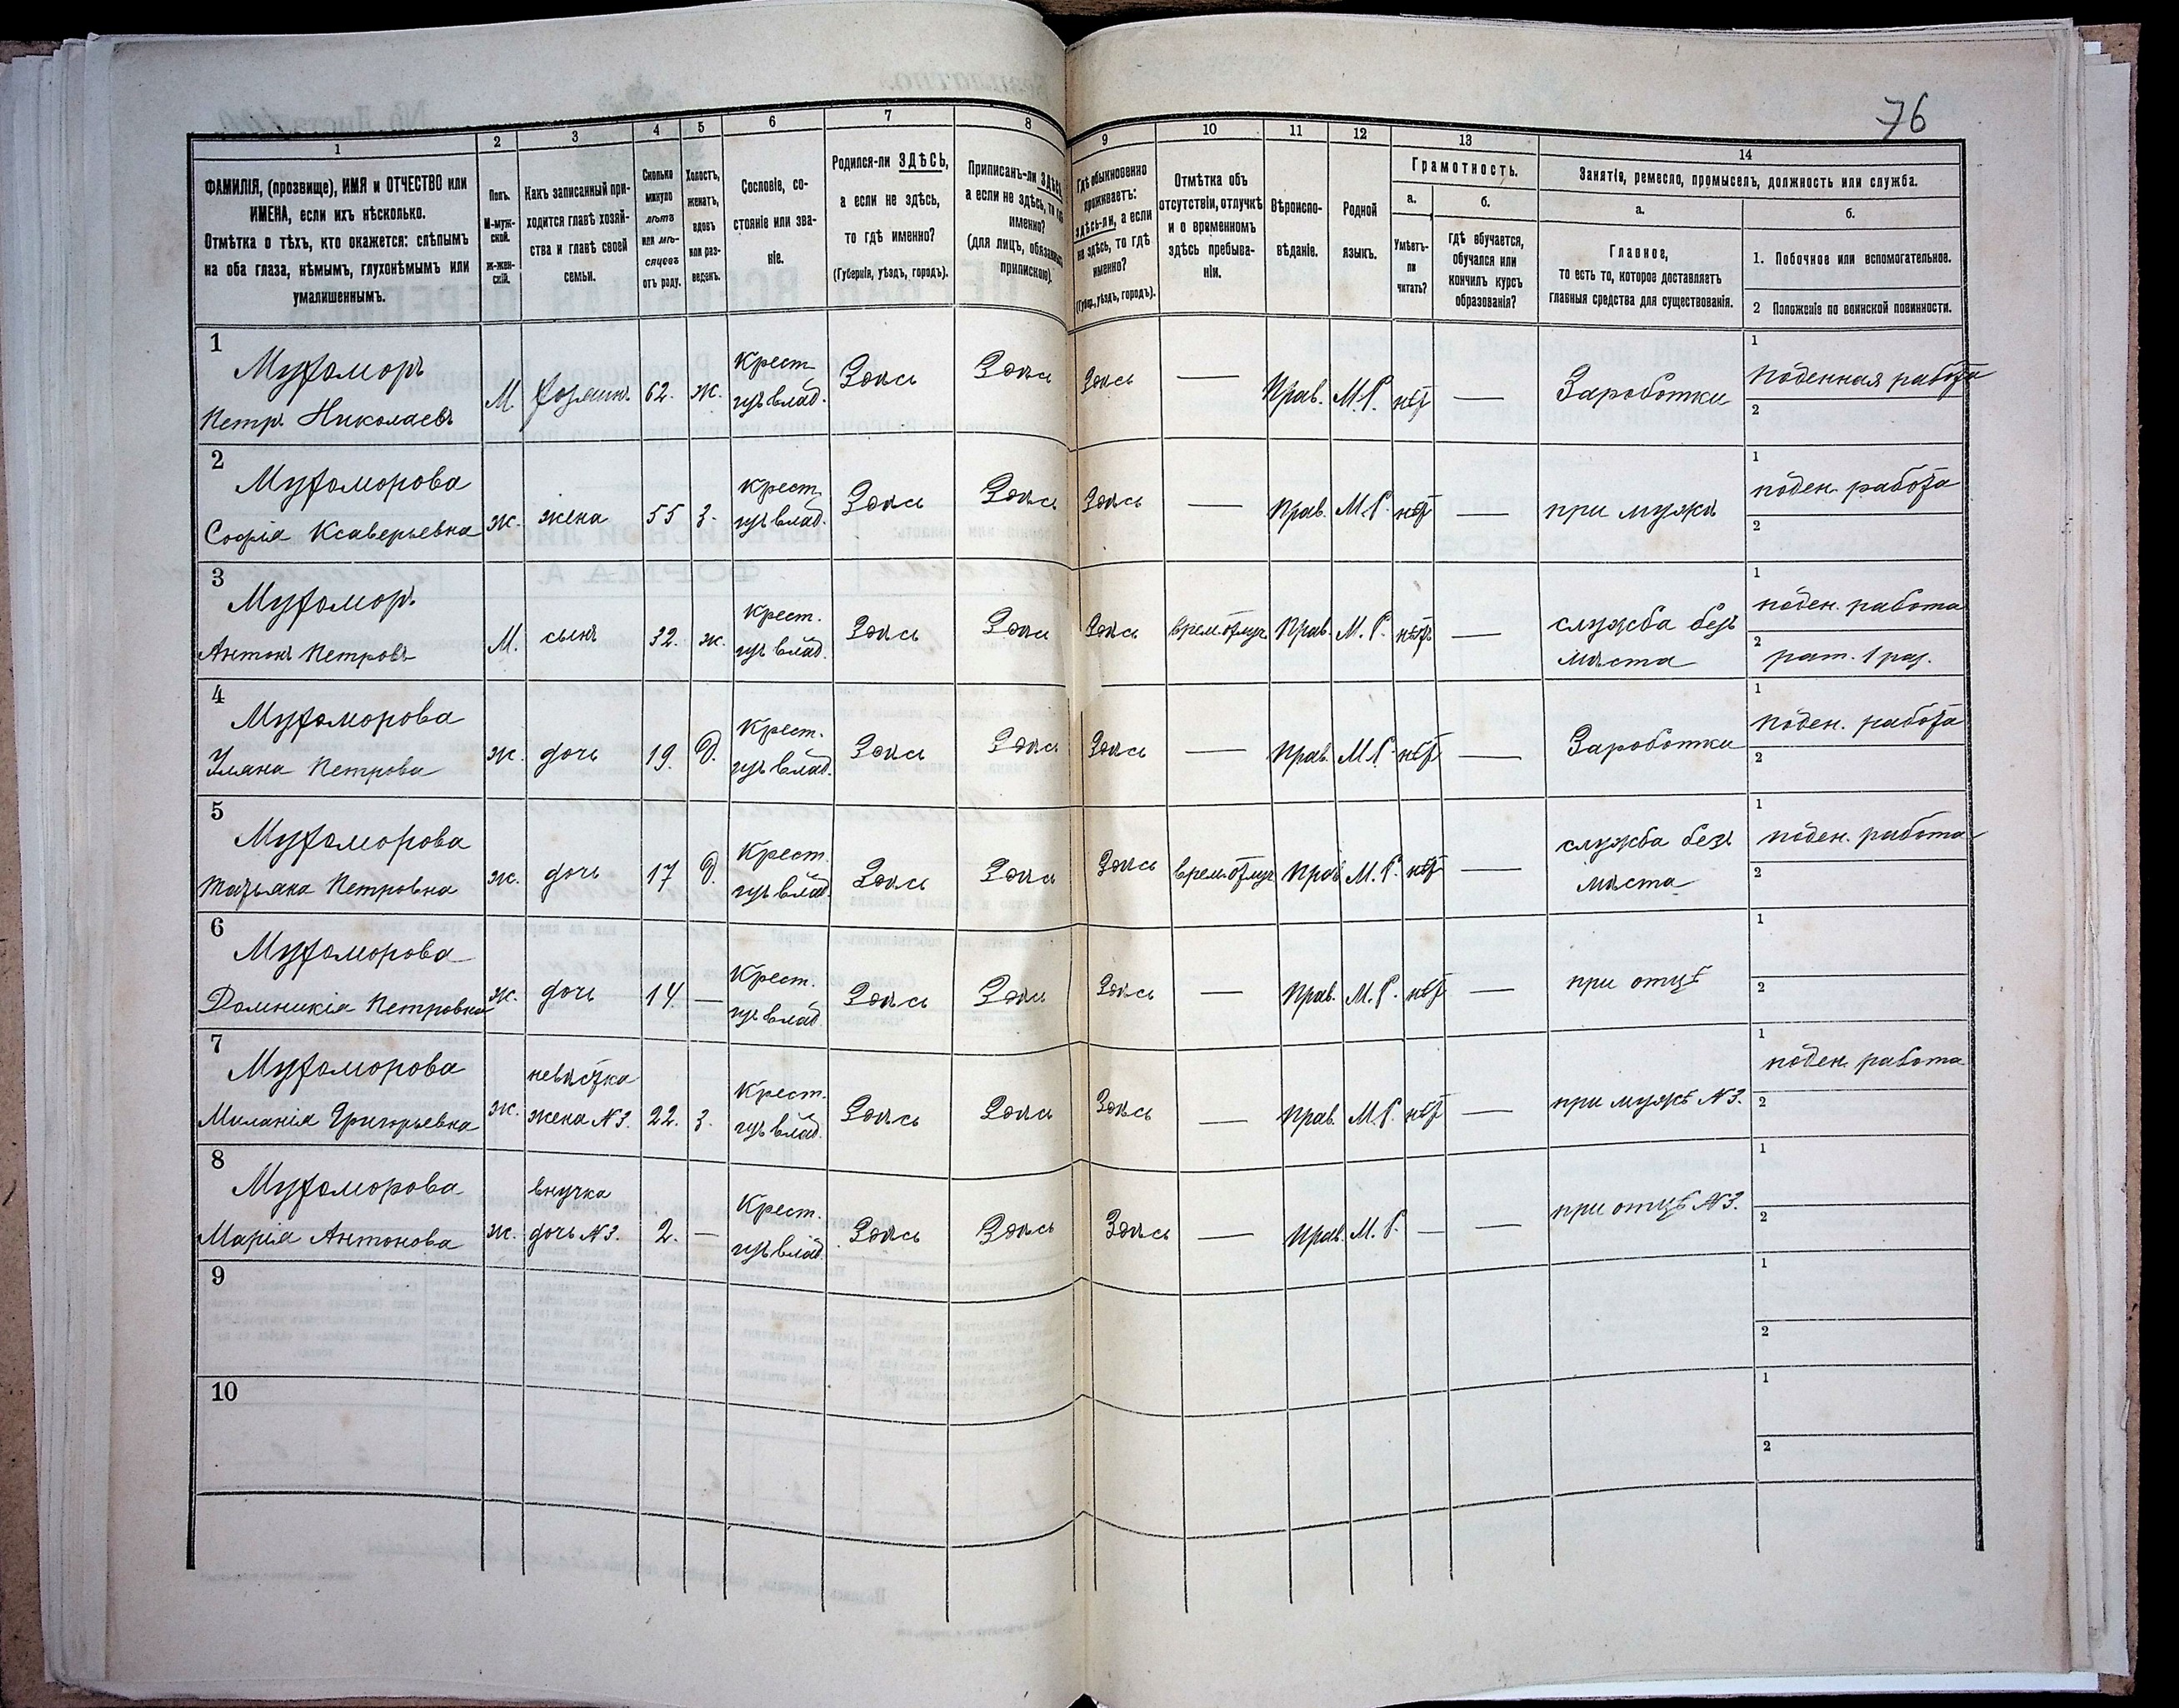 76
1
2
3
4
5
6
7
8
9
10
11
12
13
14
ФАМИЛІЯ, (прозвище), ИМЯ и ОТЧЕСТВО или
ИМЕНА, если ихъ нѣсколько.
Отмѣтка о тѣхъ, кто окажется: слѣпымъ
на оба глаза, нѣмымъ, глухонѣмымъ или
умалишеннымъ.
Полъ.
М-муж-
ской.
Ж-жен-
скій.
Какъ записанный при-
ходится главѣ хозяй-
ства и главѣ своей
семьи.
Сколько
минуло
лѣтъ
или мѣ-
сяцевъ
отъ роду.
Холостъ,
женатъ,
вдовъ
или раз-
веденъ.
Сословіе, со-
стояніе или зва-
ніе.
Родился-ли ЗДѢСЬ,
а если не здѣсь,
то гдѣ именно?
(Губернія, уѣздъ, городъ).
Приписанъ-ли ЗДѢСЬ,
а если не здѣсь, то гдѣ
именно?
(для лицъ, обязанныхъ
припискою).
Гдѣ обыкновенно
проживаетъ:
здѣсь-ли, а если
не здѣсь, то гдѣ
именно?
(Губер., уѣздъ, городъ).
Отмѣтка объ
отсутствіи, отлучкѣ
и о временномъ
здѣсь пребыва-
ніи.
Вѣроиспо-
вѣданіе.
Родной
языкъ.
Грамотность.
а.
б.
Умѣетъ-
ли
читать?
гдѣ обучается,
обучался или
кончилъ курсъ
образованія?
Занятіе, ремесло, промыселъ, должность или служба.
а.
б.
Главное,
то есть то, которое доставляетъ
главныя средства для существованія.
1. Побочное или вспомогательное.
2 Положеніе по воинской повинности.
1
Мухоморъ
Петръ Николаевъ
М. хозяинъ 62. ж.
Крест.
изъ влад.
Здѣсь Здѣсь Здѣсь — Прав. М.Р. нѣт —
Зароботки
1
Поденная работа
2
2
Мухоморова
Софія Ксаверьевна
ж. жена 55 З.
Крест.
изъ влад.
Здѣсь Здѣсь Здѣсь — Прав. М.Р. нѣт —
при мужѣ
1
поден. работа
2
3
Мухоморъ
Антонъ Петровъ
М. сынъ 32. ж.
Крест.
изъ влад.
Здѣсь Здѣсь Здѣсь врем. отлуч. Прав. М.Р. нѣт —
служба безъ
мѣста
1
поден. работа
2
рат. 1 раз.
4
Мухоморова
Уляна Петрова
ж. дочь 19. Д.
Крест.
изъ влад.
Здѣсь Здѣсь Здѣсь — Прав. М.Р. нѣт —
Зароботки
1
Поден. работа
2
5
Мухоморова
Татьяна Петровна
ж. дочь 17 Д.
Крест.
изъ влад.
Здѣсь Здѣсь Здѣсь врем. отлуч Прав М.Р. нѣт —
служба безъ
мѣста
1
поден. работа
2
6
Мухоморова
Домникія Петровна
ж. дочь 14. —
Крест.
изъ влад.
Здѣсь Здѣсь Здѣсь — Прав. М.Р. нѣт —
при отцѣ
1
2
7
Мухоморова
Миланія Григорьевна
ж.
невѣстка
жена N3. 22. З.
Крест.
изъ влад.
Здѣсь Здѣсь Здѣсь — Прав. М.Р. нѣт —
при мужѣ N3.
1
поден. работа
2
8
Мухоморова
Марія Антонова
ж.
внучка
дочь N3. 2. —
Крест.
изъ влад.
Здѣсь Здѣсь Здѣсь — Прав. М.Р. — —
при отцѣ N3.
1
2
9
1
2
10
1
2